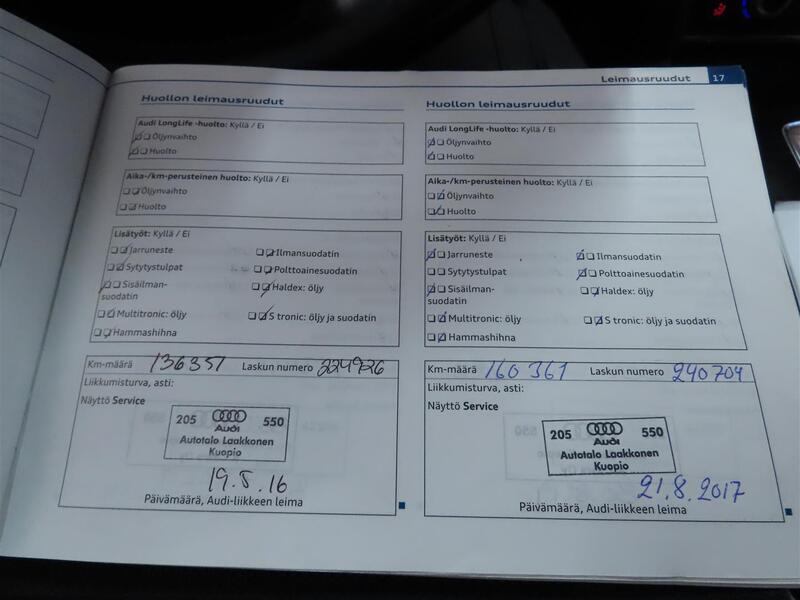 Leimausruudut 17
Huollon leimausruudut
Audi LongLife -huolto: Kyllä / Ei
Öljynvaihto
Huolto
Aika-/km-perusteinen huolto: Kyllä / Ei
Öljynvaihto
Huolto
Lisätyöt: Kyllä / Ei
Jarruneste
Ilmansuodatin
Sytytystulpat
Polttoainesuodatin
Sisäilman-
suodatin
Haldex: öljy
Multitronic: öljy
S tronic: öljy ja suodatin
Hammashihna
Km-määrä 136351 Laskun numero 224926
Liikkumisturva, asti:
Näyttö Service
205 550
Audi
Autotalo Laakkonen
Kuopio
19.5.16
Päivämäärä, Audi-liikkeen leima
Huollon leimausruudut
Audi LongLife -huolto: Kyllä / Ei
Öljynvaihto
Huolto
Aika-/km-perusteinen huolto: Kyllä / Ei
Öljynvaihto
Huolto
Lisätyöt: Kyllä / Ei
Jarruneste
Ilmansuodatin
Sytytystulpat
Polttoainesuodatin
Sisäilman-
suodatin
Haldex: öljy
Multitronic: öljy
S tronic: öljy ja suodatin
Hammashihna
Km-määrä 160361 Laskun numero 240704
Liikkumisturva, asti:
Näyttö Service
205 550
Audi
Autotalo Laakkonen
Kuopio
21.8.2017
Päivämäärä, Audi-liikkeen leima